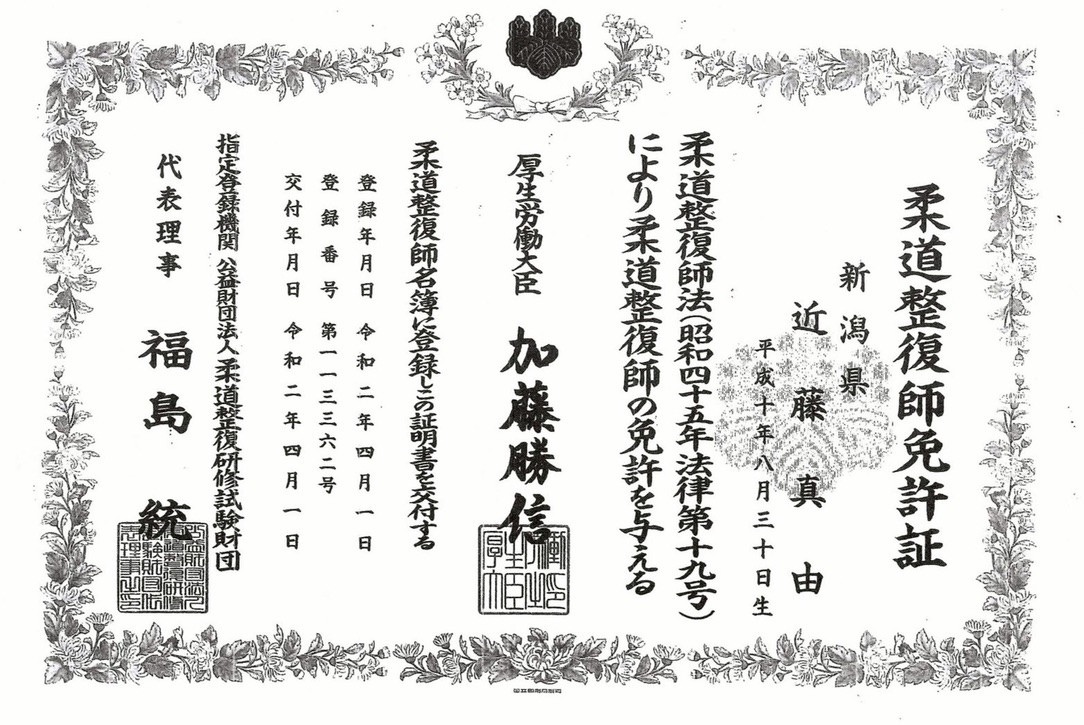 柔道整復師免許証
新潟県
近藤真由
平成十年八月三十日生
柔道整復師法(昭和四十五年法律第十九号)
により柔道整復師の免許を与える
厚生労働大臣 加藤勝信
柔道整復師名簿に登録しこの証明書を交付する
登録年月日 令和二年四月一日
登録番号 第一一三三六二号
交付年月日 令和二年四月一日
指定登録機関 公益財団法人 柔道整復研修試験財団
代表理事 福島統